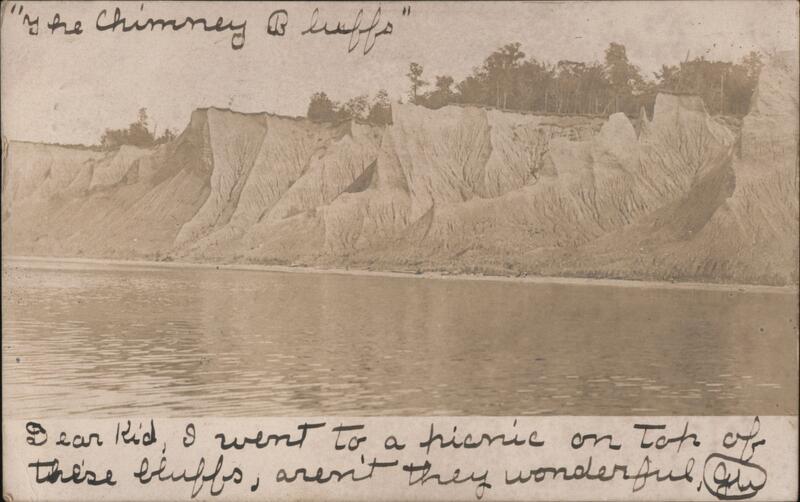 "The Chimney Bluffs"
Dear Kid, I went to a picnic on top of
these bluffs, aren't they wonderful,